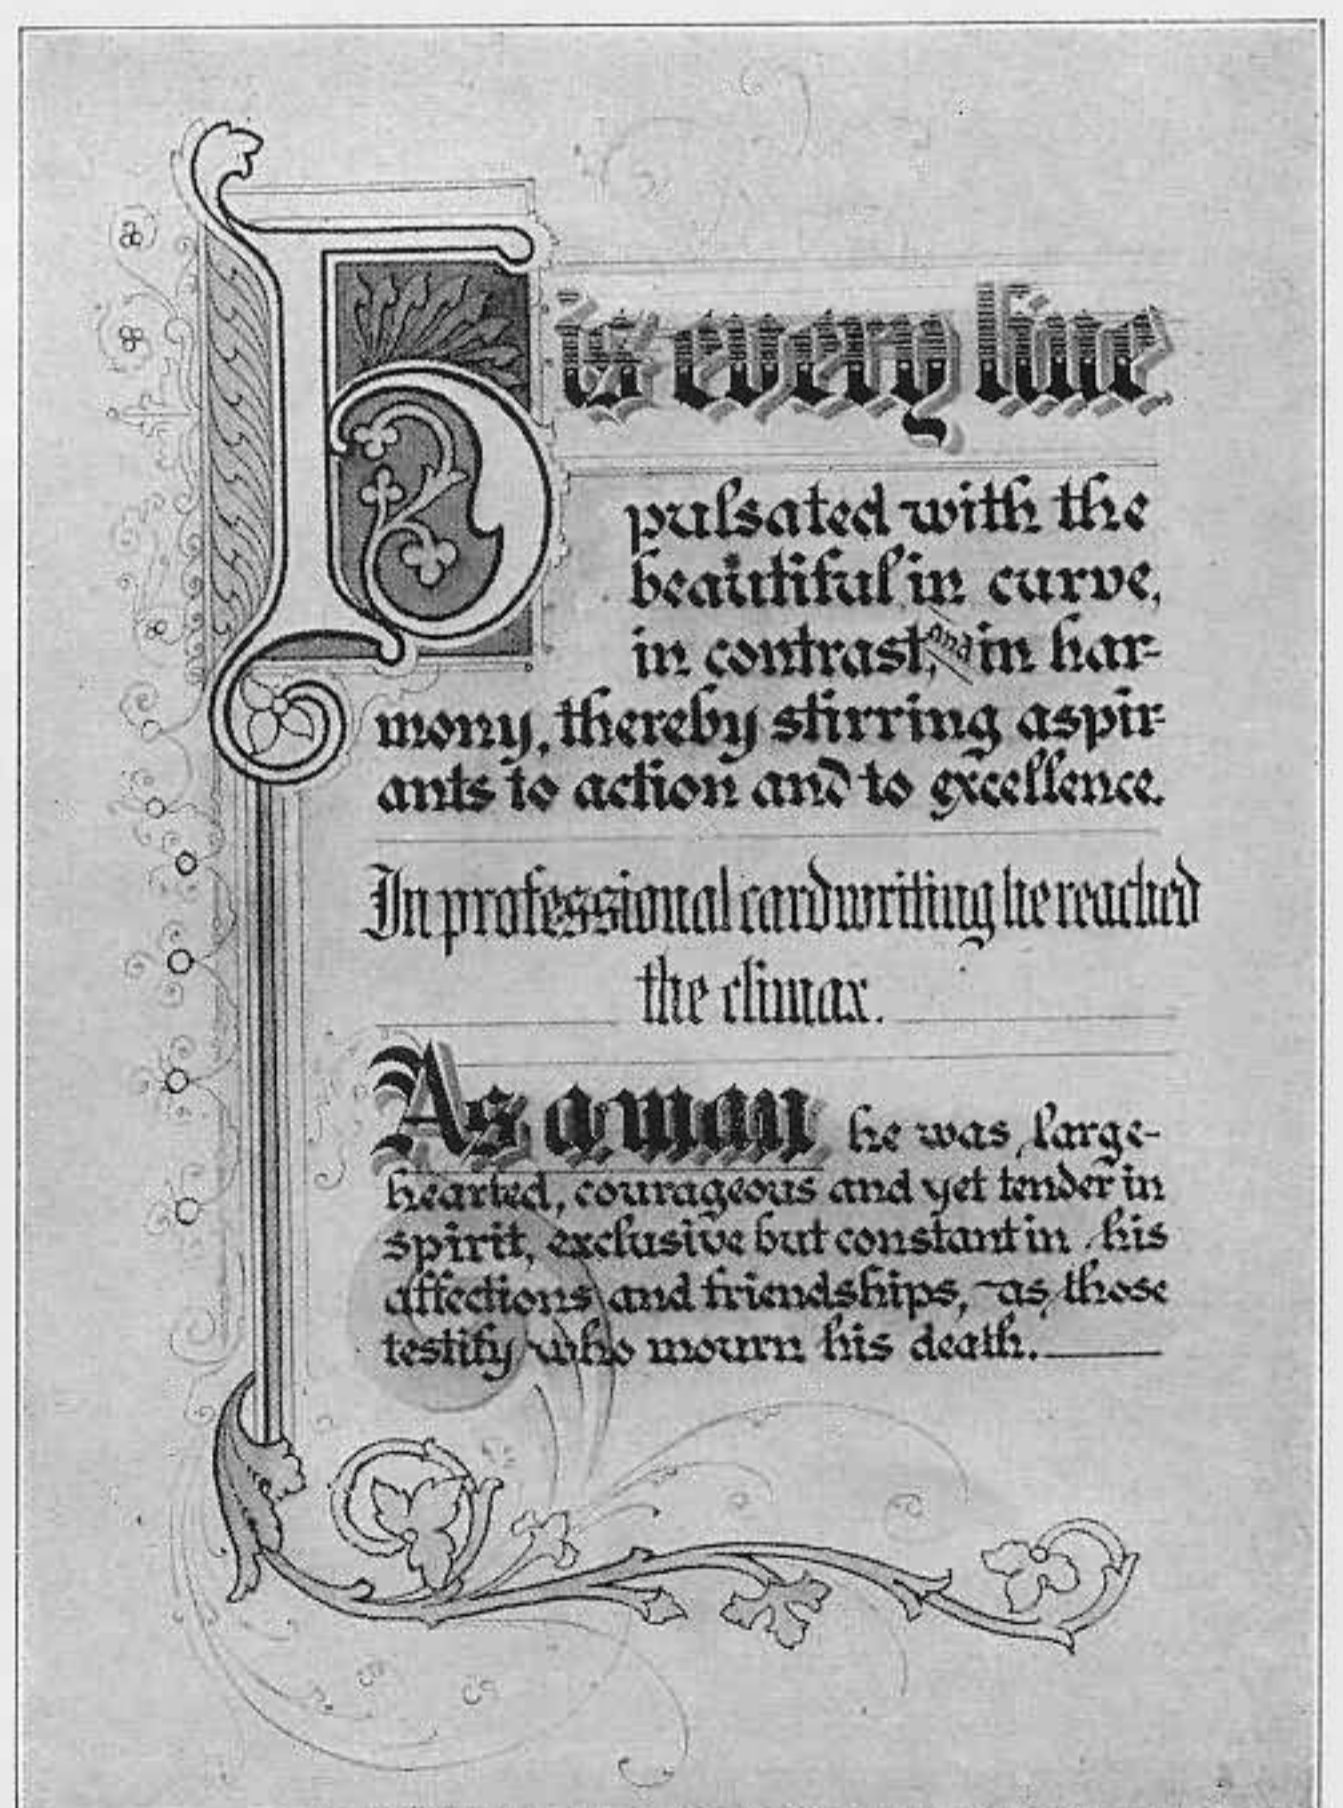 His every line
pulsated with the
beautiful in curve,
in contrast, and in har-
mony, thereby stirring aspir-
ants to action and to excellence.
In professional cardwriting he reached
the climax.
As a man he was large-
hearted, courageous and yet tender in
spirit, exclusive but constant in his
affections and friendships, as those
testify who mourn his death.